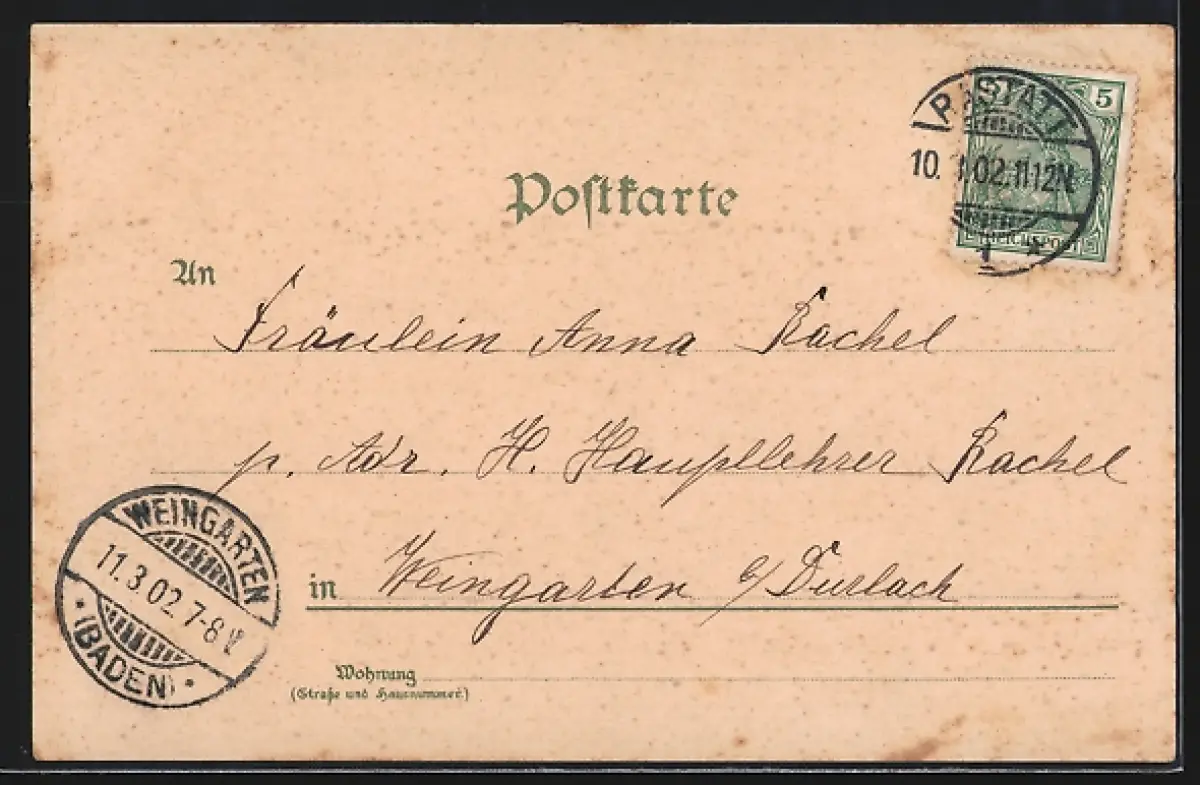 RASTATT
5
10.3.02.11-12N.
REICHSPOST
1 *
Postkarte
An
Fräulein Anna Rachel
p. Adr. H. Hauptlehrer Rachel
in Weingarten b/Durlach
WEINGARTEN
11.3.02.7-8V.
* (BADEN) *
Wohnung
(Straße und Hausnummer.)